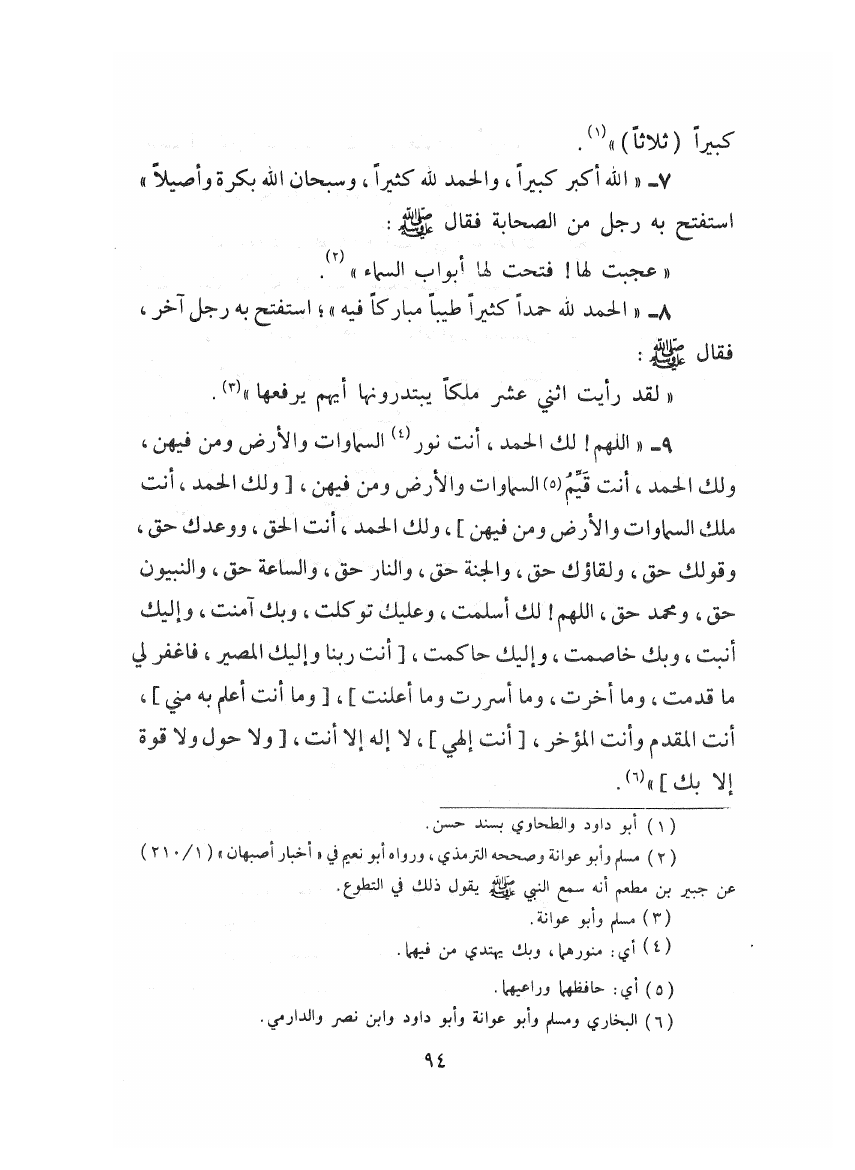 كبيراً ( ثلاثاً ) »(١) .
٧ـ « الله أكبر كبيراً ، والحمد لله كثيراً ، وسبحان الله بكرة وأصيلاً »
استفتح به رجل من الصحابة فقال ﷺ :
« عجبت لها ! فتحت لها أبواب السماء »(٢).
٨ـ « الحمد لله حمداً كثيراً طيباً مباركاً فيه » ؛ استفتح به رجل آخر ،
فقال ﷺ :
« لقد رأيت اثني عشر ملكاً يبتدرونها أيهم يرفعها »(٣) .
٩ـ « اللهم ! لك الحمد ، أنت نور(٤) السماوات والأرض ومن فيهن ،
ولك الحمد ، أنت قَيِّمُ(٥) السماوات والأرض ومن فيهن ، [ ولك الحمد ، أنت
ملك السماوات والأرض ومن فيهن ] ، ولك الحمد ، أنت الحق ، ووعدك حق ،
وقولك حق ، ولقاؤك حق ، والجنة حق ، والنار حق ، والساعة حق ، والنبيون
حق ، ومحمد حق ، اللهم ! لك أسلمت ، وعليك توكلت ، وبك آمنت ، وإليك
أنبت ، وبك خاصمت ، وإليك حاكمت ، [ أنت ربنا وإليك المصير ، فاغفر لي
ما قدمت ، وما أخرت ، وما أسررت وما أعلنت ] ، [ وما أنت أعلم به مني ] ،
أنت المقدم وأنت المؤخر ، [ أنت إلهي ] ، لا إله إلا أنت ، [ ولا حول ولا قوة
إلا بك ] »(٦) .
( ١ ) أبو داود والطحاوي بسند حسن .
( ٢ ) مسلم وأبو عوانة وصححه الترمذي ، ورواه أبو نعيم في « أخبار أصبهان » ( ١ / ٢١٠ )
عن جبير بن مطعم أنه سمع النبي ﷺ يقول ذلك في التطوع .
( ٣ ) مسلم وأبو عوانة .
( ٤ ) أي : منورهما ، وبك يهتدي من فيهما .
( ٥ ) أي : حافظهما وراعيهما .
( ٦ ) البخاري ومسلم وأبو عوانة وأبو داود وابن نصر والدارمي .
٩٤